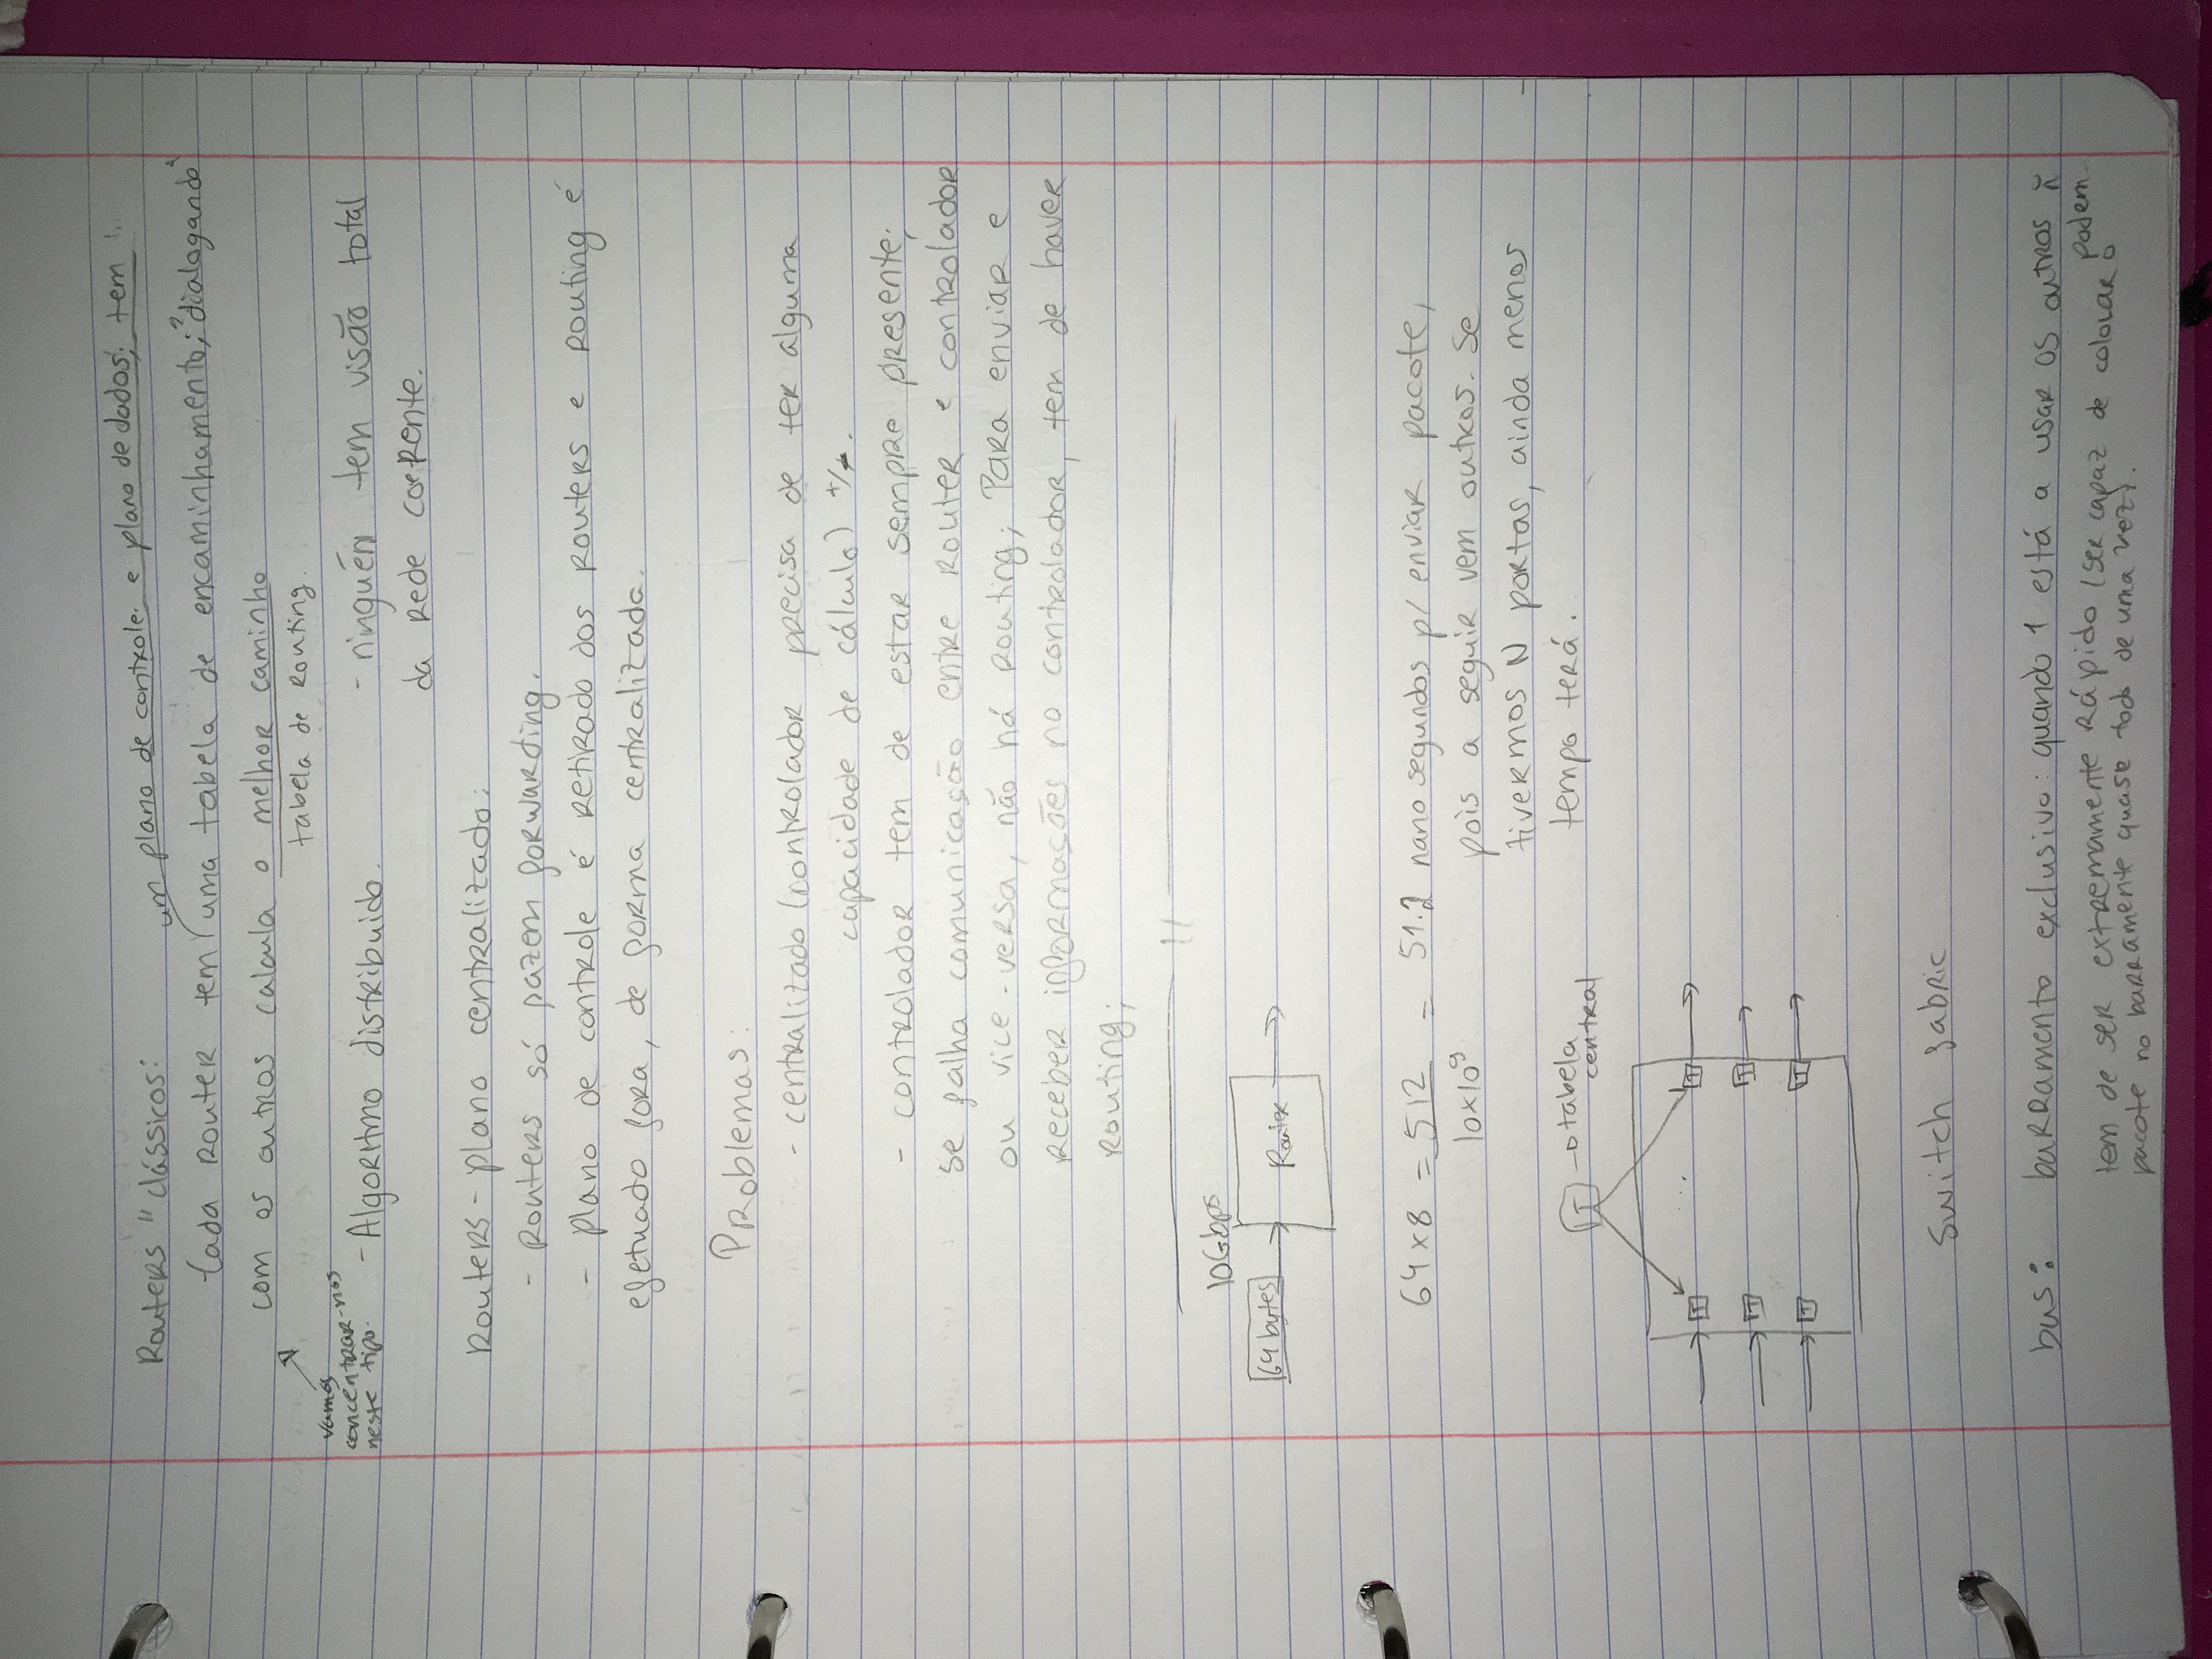 Routers "clássicos:
um plano de controle; e plano de dados; tem
Cada router tem uma tabela de encaminhamento; "dialogando"
com os outros calcula o melhor caminho
tabela de routing.
vamos
concentrar-nos
neste tipo.
- Algoritmo distribuido.
- ninguém tem visão total
da rede coerente.
Routers - plano centralizado:
- Routers só fazem forwarding.
- plano de controle é retirado dos routers e routing é
efetuado fora, de forma centralizada.
Problemas:
- centralizado (controlador precisa de ter alguma
capacidade de cálculo) +/-.
- controlador tem de estar sempre presente;
se falha comunicação entre router e controlador
ou vice-versa, não há routing; Para enviar e
receber informações no controlador, tem de haver
routing;
10Gbps
64 bytes
Router
64x8 = 512 = 51.2 nano segundos p/ enviar pacote,
10x10⁹
pois a seguir vem outros. Se
tivermos N portas, ainda menos
tempo terá.
T → tabela
central
T T
T T
T T
switch fabric
bus: barramento exclusivo: quando 1 está a usar os outros ñ
podem.
tem de ser extremamente rápido (ser capaz de colocar o
pacote no barramente quase todo de uma vez).